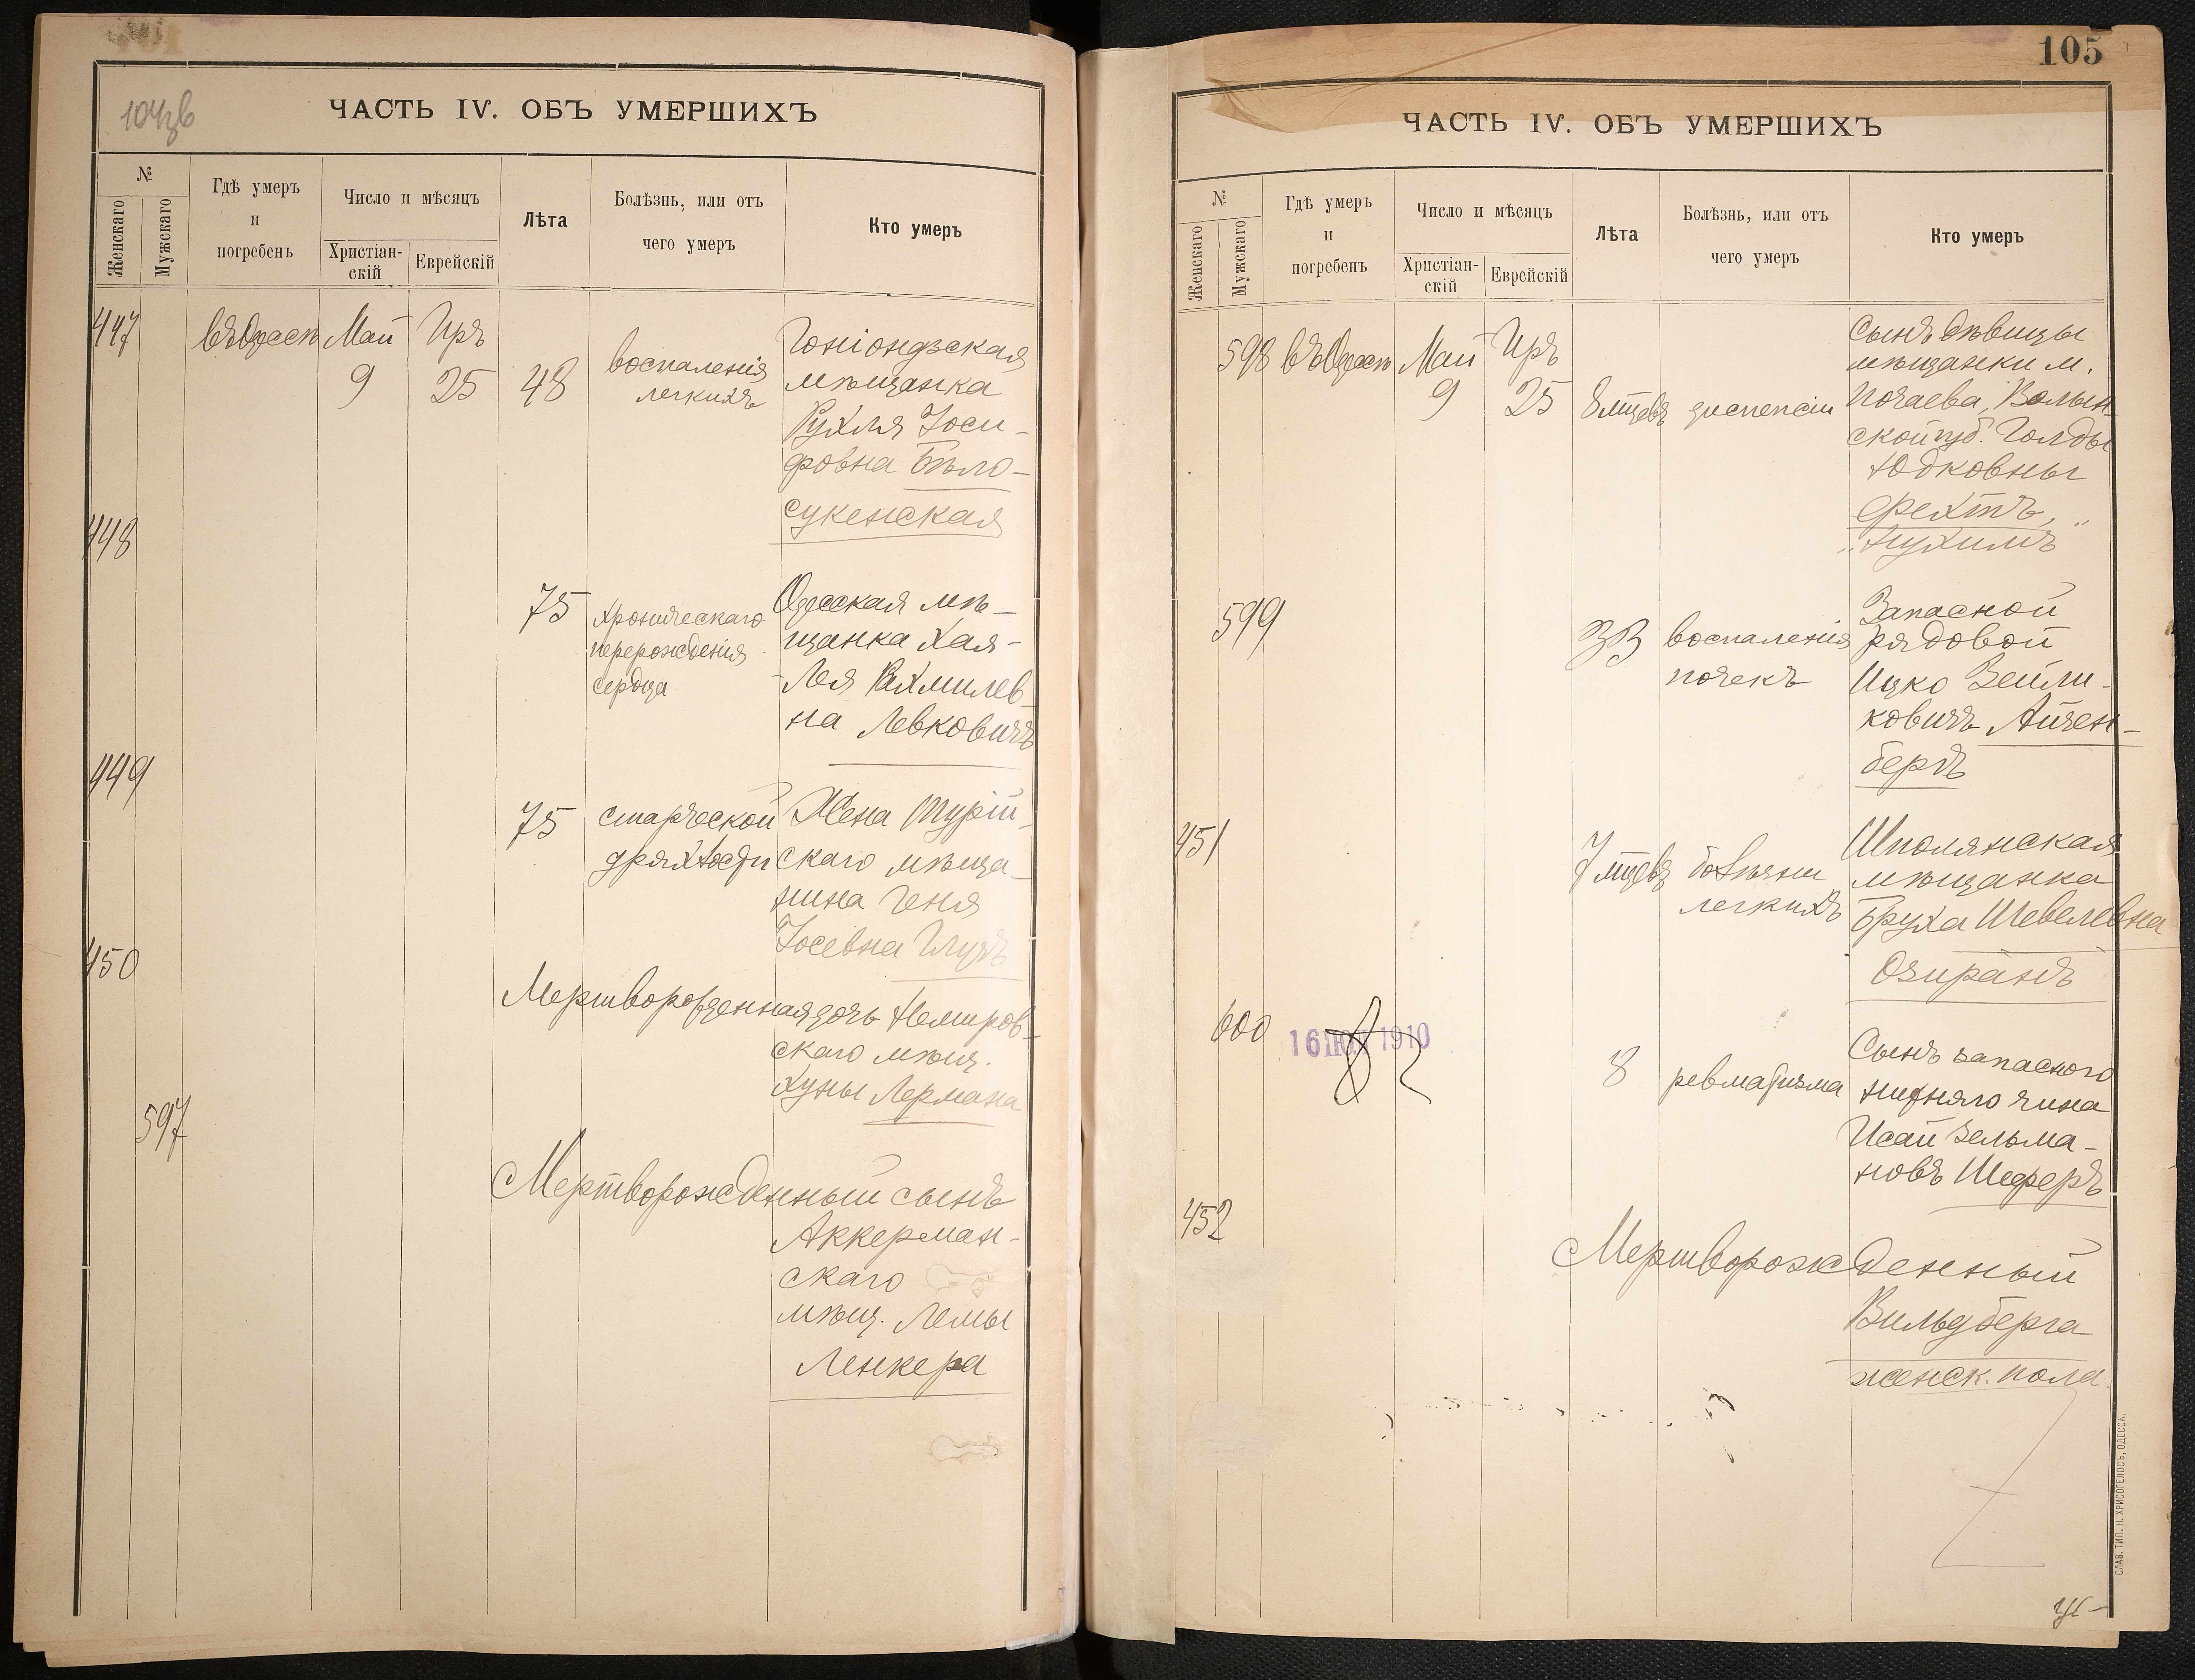 104зв
ЧАСТЬ IV. ОБЪ УМЕРШИХЪ
№
Женскаго
Мужскаго
Гдѣ умеръ
и
погребенъ
Число и мѣсяцъ
Христіан-
скій
Еврейскій
Лѣта
Болѣзнь, или отъ
чего умеръ
Кто умеръ
447
въ Одессѣ
Май
9
Иръ
25
48
воспаленія
легкихъ
Гоніондзская
мѣщанка
Рухля Іоси-
фовна Бѣло-
сукенская
448
75
хроническаго
перерожденія
сердца
Одесская мѣ-
щанка Хая-
Лея Рахмилев-
на Левковичъ
449
75
старческой
дряхлости
Жена Турій-
скаго мѣща-
нина Геня
Іосевна Глузъ
450
Мертворожденная дочь Немиров-
скаго мѣщ.
Хуны Лермана
597
Мертворожденный сынъ
Аккерман-
скаго
мѣщ. Лемы
Ленкера
105
ЧАСТЬ IV. ОБЪ УМЕРШИХЪ
№
Женскаго
Мужскаго
Гдѣ умеръ
и
погребенъ
Число и мѣсяцъ
Христіан-
скій
Еврейскій
Лѣта
Болѣзнь, или отъ
чего умеръ
Кто умеръ
598
въ Одессѣ
Май
9
Иръ
25
8 мцевъ
диспепсіи
Сынъ дѣвицы
мѣщанки м.
Почаева, Волын
ской губ. Голды
Юдковны
Фехтъ, „
„Нухимъ
599
33
воспаленія
почекъ
Запасной
рядовой
Ицко Зейли-
ковичъ Айзен-
бергъ
451
7 мцевъ
болѣзни
легкихъ
Шполянская
мѣщанка
Бруха Шевелевна
Озиранъ
600
16 1910
8
ревматизма
Сынъ запасного
нижняго чина
Исай Зельма-
новъ Шеферъ
452
Мертворожденный
Вильдберга
женск. пола
СЛАВ. ТИП. Н. ХРИСОГЕЛОСЪ, ОДЕССА.